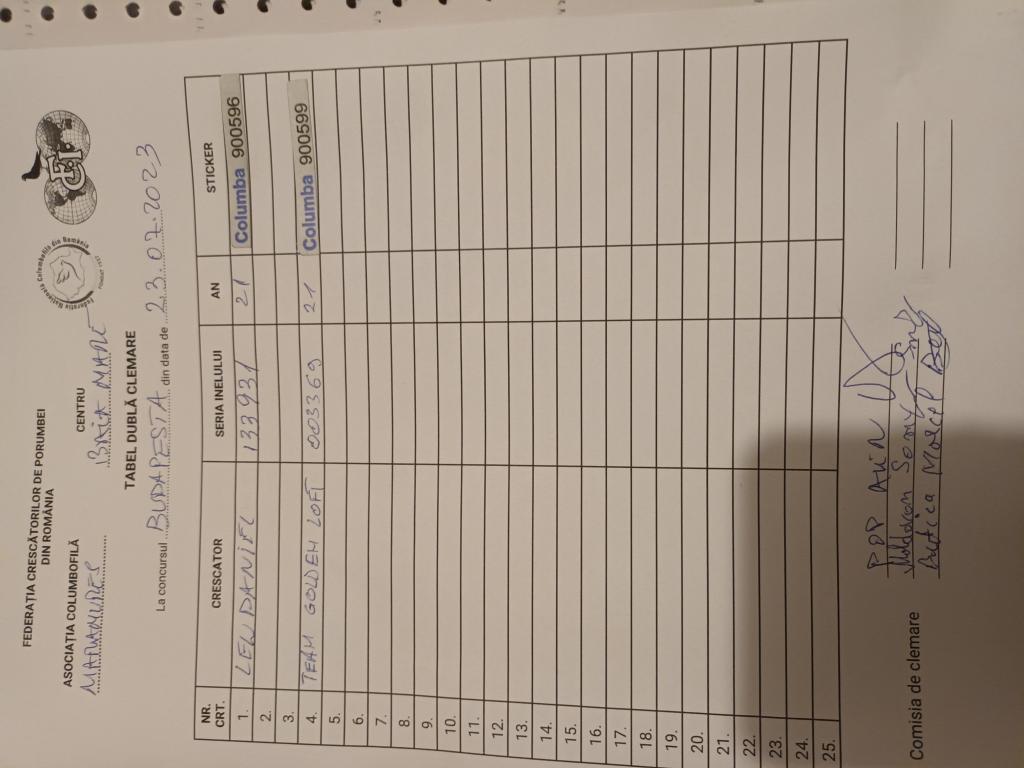 FEDERAȚIA CRESCĂTORILOR DE PORUMBEI
DIN ROMÂNIA
ASOCIAȚIA COLUMBOFILĂ CENTRU
MARAMUREȘ BAIA MARE
Federația Națională Columbofilă din România
FCI
TABEL DUBLĂ CLEMARE
La concursul BUDAPESTA din data de 23.07.2023
NR. CRT. CRESCATOR SERIA INELULUI AN STICKER
1. LEW DANIEL 133931 21 Columba 900596
2.
3.
4. TEAM GOLDEN LOFT 003369 21 Columba 900599
5.
6.
7.
8.
9.
10.
11.
12.
13.
14.
15.
16.
17.
18.
19.
20.
21.
22.
23.
24.
25.
Comisia de clemare
POP ALIN
Moldovan
Marcel